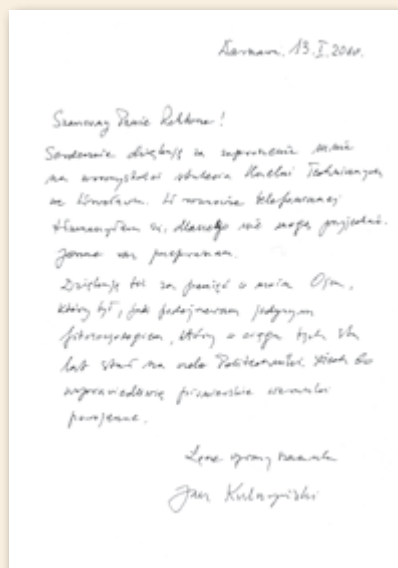 Warszawa, 13.I.2010.
Szanowny Panie Rektorze!
Serdecznie dziękuję za zaproszenie mnie
na uroczystości stulecia Uczelni Technicznych
we Wrocławiu. W rozmowie telefonicznej
tłumaczyłem się, dlaczego nie mogę przyjechać.
raz przepraszam.
Dziękuję też za pamięć o moim Ojcu,
który był, jak podejrzewam jedynym
fitosocjologiem, który w ciągu tych stu
lat stał na czele Politechniki. Niech Go
usprawiedliwią pionierskie warunki
powojenne.
Łączę wyrazy szacunku
Jan Kulczyński